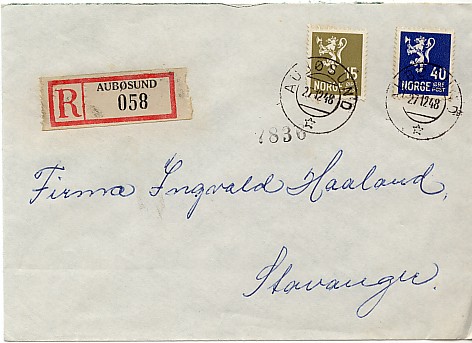 AUBØSUND
R 058
15
NORGE
40
ØRE
NORGE POST
AUBØSUND
27 12 48
27 12 48
7836
Firma Ingvald Haaland,
Stavanger.